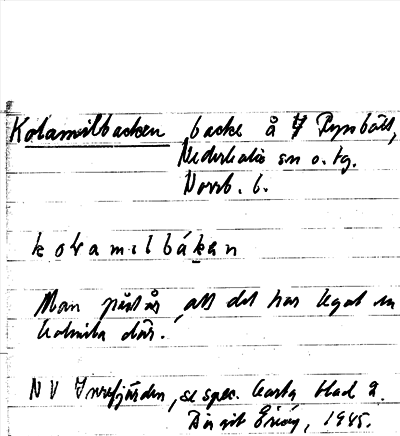 Kolamilbacken backe å
Nederkalix sn o. tg.
Norrb. l.
kolamilbáken
Man påstår, att det har legat en
kolmila där.
NV Innefjärden, se spec. karta blad 2.
Birgit 1945.